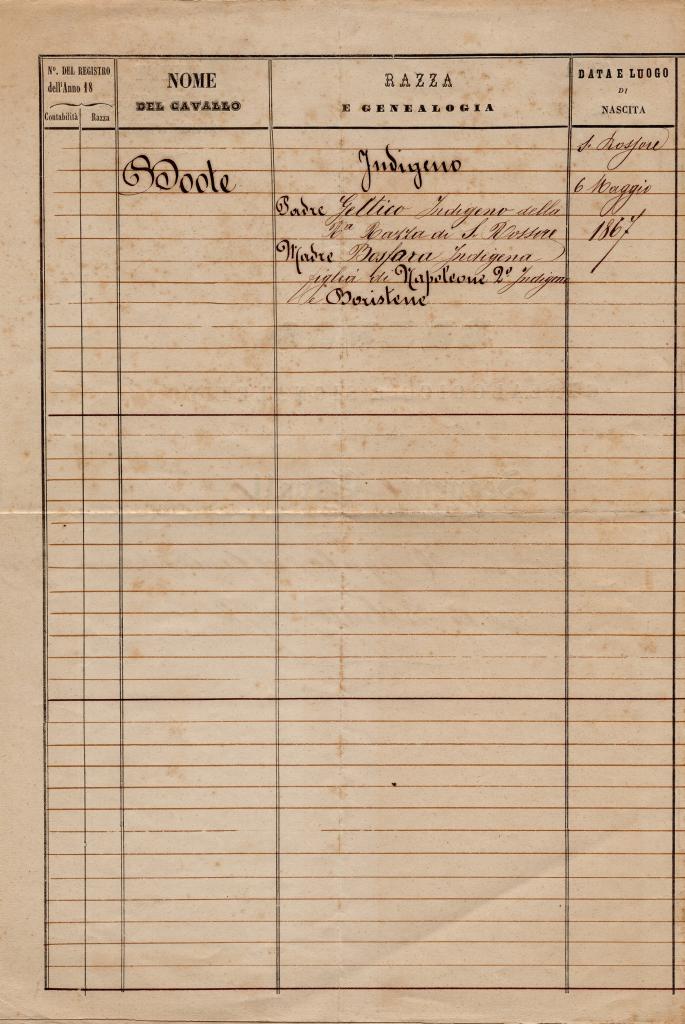 Nº. DEL REGISTRO
dell'Anno 18
Contabilità Razza
NOME
DEL CAVALLO
RAZZA
E GENEALOGIA
DATA E LUOGO
DI
NASCITA
Boote
Indigeno
Padre Geltico Indigeno della
Rª Razza di S. Rossore
Madre Bosfara Indigena
figlia di Napoleone 2º Indigeno
e Boristene
S. Rossore
6 Maggio
1867